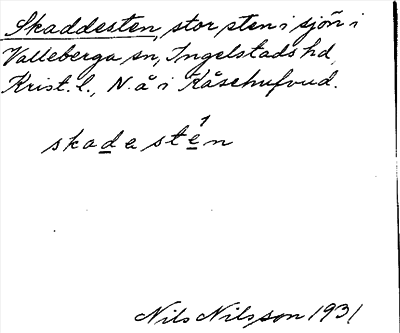 Skaddesten, stor sten i sjön i
Valleberga sn, Ingelstads hd,
Krist. l., N. å i Kåsehufvud.
skadesten
Nils Nilsson 1931